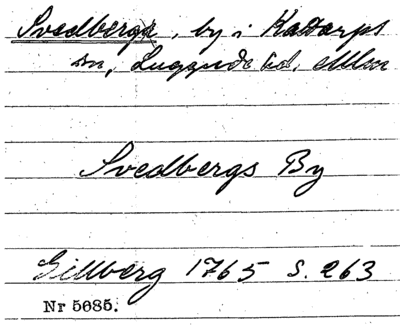 Svedberga, by i Kattarps
sn, Luggude hd. Mlm
Svedbergs By
Gillberg 1765 S. 263
Nr 5685.